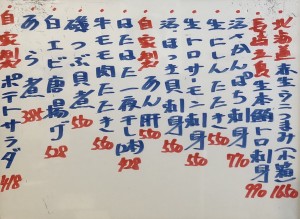 北海道 赤生うにつまみ(小箱) 1650
長崎産 生本鮪トロ刺身 990
活〆かんぱち刺身 770
生にしんたたき 550
生トロサーモン刺身 550
活ほっき貝刺身 550
自家製 あん肝 550
はたはた一夜干し 428
牛モモ肉たたき 550
磯つぶ貝煮 550
白エビ唐揚げ 528
あら煮 385
自家製 ポテトサラダ 418